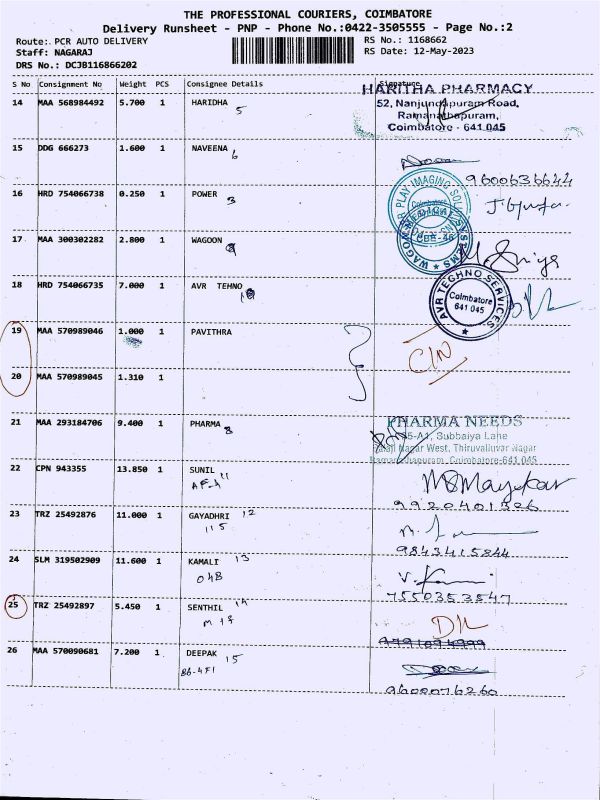 THE PROFESSIONAL COURIERS, COIMBATORE
Delivery Runsheet - PNP - Phone No.:0422-3505555 - Page No.:2
Route: PCR AUTO DELIVERY
RS No.: 1168662
Staff: NAGARAJ
RS Date: 12-May-2023
DRS No.: DCJB116866202
S No Consignment No Weight PCS Consignee Details Signature
14 MAA 568984492 5.700 1 HARIDHA 5
HARITHA PHARMACY
52, Nanjundapuram Road,
Ramanathapuram,
Coimbatore - 641 045
15 DDG 666273 1.600 1 NAVEENA 6
9600636644
16 HRD 754066738 0.250 1 POWER 3
17 MAA 300302282 2.800 1 WAGOON
18 HRD 754066735 7.000 1 AVR TEHNO
AVR TECHNO SERVICES
Coimbatore
641 045
19 MAA 570989046 1.000 1 PAVITHRA
C/N
20 MAA 570989045 1.310 1
21 MAA 293184706 9.400 1 PHARMA 8
PHARMA NEEDS
Subbaiya Lane
Nagar West, Thiruvalluvar Nagar
Ramanathapuram, Coimbatore-641 045
22 CPN 943355 13.850 1 SUNIL 11
9920401326
23 TRZ 25492876 11.000 1 GAYADHRI 12
115
9843415844
24 SLM 319502909 11.600 1 KAMALI 13
04B
7550353547
25 TRZ 25492897 5.450 1 SENTHIL 14
DL
26 MAA 570090681 7.200 1 DEEPAK 15
B6-4F1